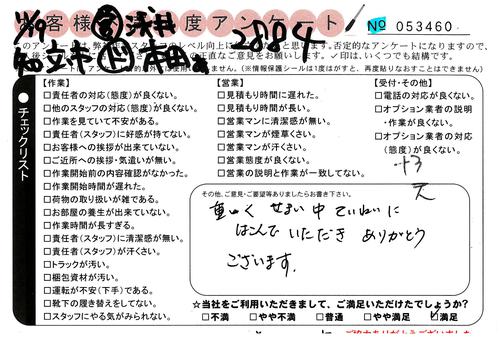 11/19 浅井
お客様満足度アンケート
No 053460
2884
知立市
このアンケートは、弊社
スタッフのレベル向上に
と思います。否定的なアンケートになりますので、
の正直なご意見をお願いします。✓印は、いくつでも結構です。
(※情報保護シールは1度はがすと、再度貼りなおすことはできません)
●チェックリスト
【作業】
□責任者の対応(態度)が良くない。
□他のスタッフの対応(態度)が良くない。
□作業を見ていて不安がある。
□責任者(スタッフ)に好感が持てない。
□お客様への挨拶が出来ていない。
□ご近所への挨拶・気遣いが無い。
□作業開始前の内容確認がなかった。
□作業開始時間が遅れた。
□荷物の取り扱いが雑である。
□お部屋の養生が出来ていない。
□作業時間が長すぎる。
□責任者(スタッフ)に清潔感が無い。
□責任者(スタッフ)が汗くさい。
□トラックが汚い。
□梱包資材が汚い。
□運転が不安(下手)である。
□靴下の履き替えをしてない。
□スタッフにやる気がみられない。
【営業】
□見積もり時間に遅れた。
□見積もり時間が長い。
□営業マンに清潔感が無い。
□営業マンが煙草くさい。
□営業マンが汗くさい。
□営業態度が良くない。
□営業の説明と作業が一致してない。
【受付・その他】
□電話の対応が良くない。
□オプション業者の説明
・作業が良くない。
□オプション業者の対応
(態度)が良くない。
その他、ご意見・ご要望等ありましたらお書き下さい。
重くせまい中ていねいに
はこんでいただきありがとう
ございます。
☆当社をご利用いただきまして、ご満足いただけたでしょうか?
□不満 □やや不満 □普通 □やや満足 ☑満足